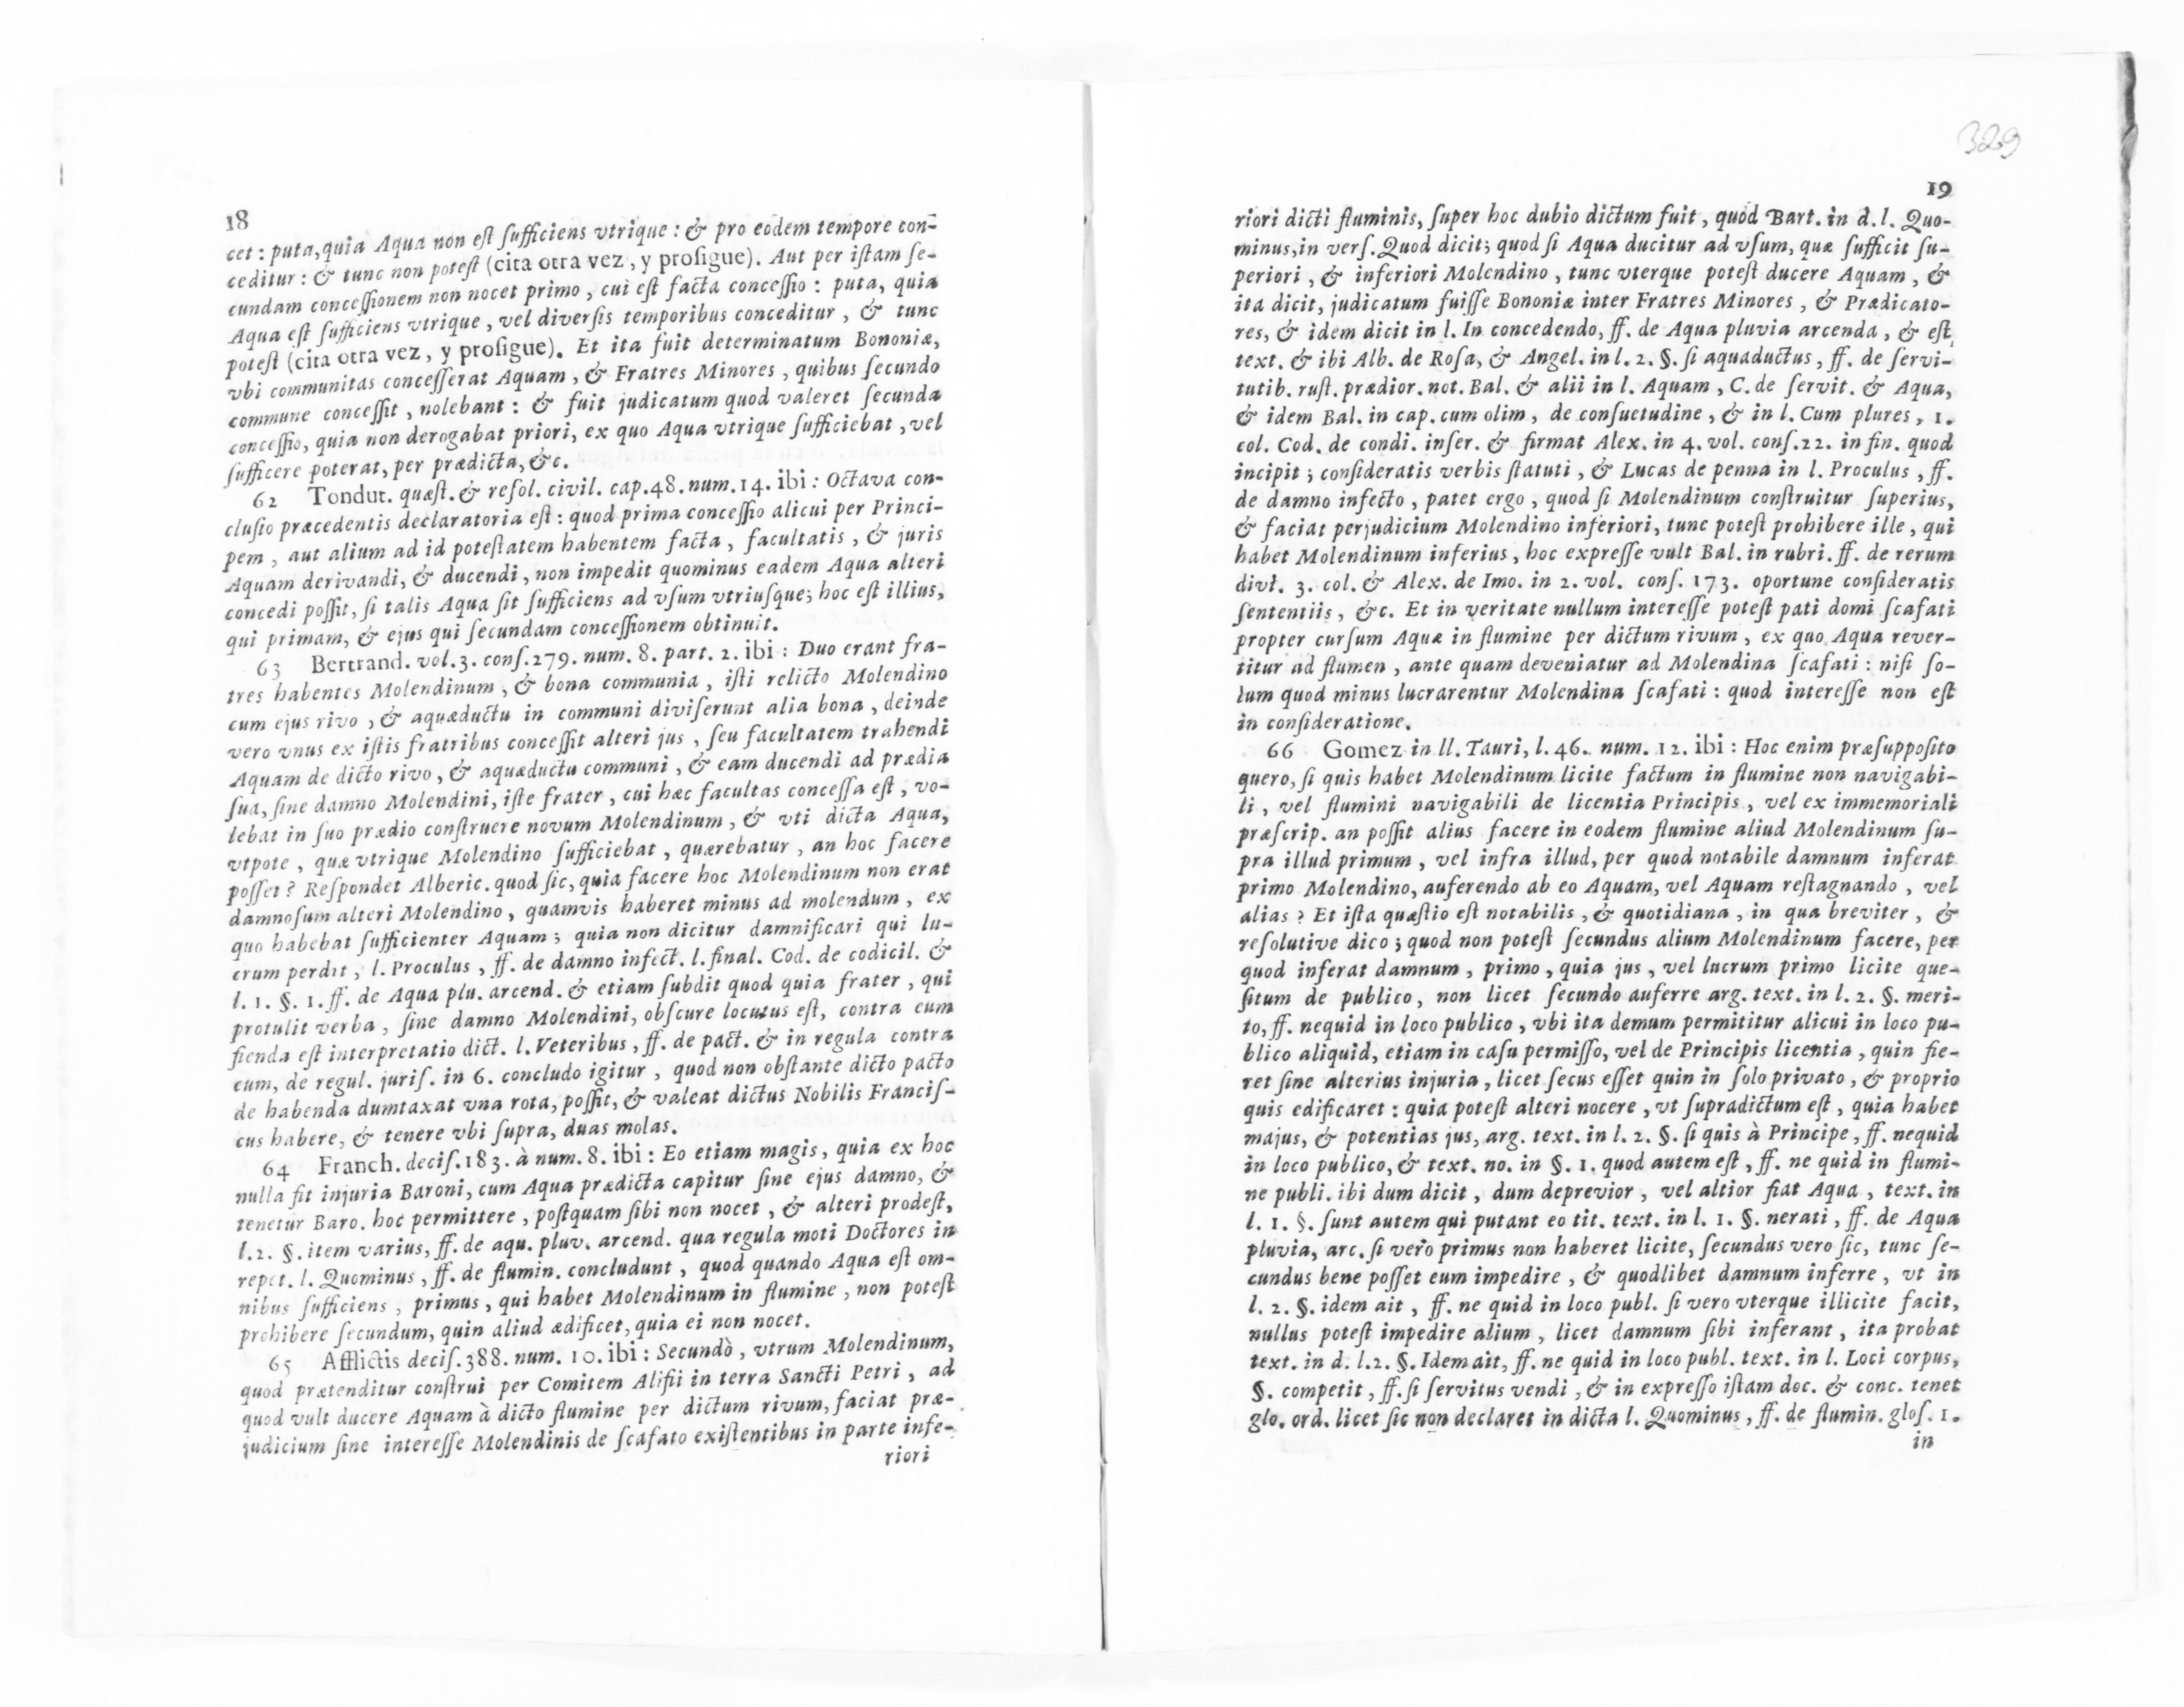 18
cet : puta,quia Aqua non eſt ſufficiens vtrique : & pro eodem tempore con-
ceditur : & tunc non poteſt (cita otra vez, y proſigue). Aut per iſtam ſe-
cundam conceſſionem non nocet primo, cui eſt facta conceſſio : puta, quia
Aqua eſt ſufficiens vtrique, vel diverſis temporibus conceditur, & tunc
poteſt (cita otra vez, y proſigue). Et ita fuit determinatum Bononiæ,
vbi communitas conceſſerat Aquam, & Fratres Minores, quibus ſecundo
commune conceſſit, nolebant : & fuit judicatum quod valeret ſecunda
conceſſio, quia non derogabat priori, ex quo Aqua vtrique ſufficiebat, vel
ſufficere poterat, per prædicta, &c.
62 Tondut. quæſt. & reſol. civil. cap.48. num.14. ibi : Octava con-
cluſio præcedentis declaratoria eſt : quod prima conceſſio alicui per Princi-
pem, aut alium ad id poteſtatem habentem facta, facultatis, & juris
Aquam derivandi, & ducendi, non impedit quominus eadem Aqua alteri
concedi poſſit, ſi talis Aqua ſit ſufficiens ad vſum vtriuſque; hoc eſt illius,
qui primam, & ejus qui ſecundam conceſſionem obtinuit.
63 Bertrand. vol.3. conſ.279. num. 8. part. 2. ibi : Duo erant fra-
tres habentes Molendinum, & bona communia, iſti relicto Molendino
cum ejus rivo, & aquæductu in communi diviſerunt alia bona, deinde
vero vnus ex iſtis fratribus conceſſit alteri jus, ſeu facultatem trahendi
Aquam de dicto rivo, & aquæductu communi, & eam ducendi ad prædia
ſua, ſine damno Molendini, iſte frater, cui hæc facultas conceſſa eſt, vo-
lebat in ſuo prædio conſtruere novum Molendinum, & vti dicta Aqua,
vtpote, quæ vtrique Molendino ſufficiebat, quærebatur, an hoc facere
poſſet ? Reſpondet Alberic. quod ſic, quia facere hoc Molendinum non erat
damnoſum alteri Molendino, quamvis haberet minus ad molendum, ex
quo habebat ſufficienter Aquam; quia non dicitur damnificari qui lu-
crum perdit, l. Proculus, ff. de damno infect. l. final. Cod. de codicil. &
l. 1. §. 1. ff. de Aqua plu. arcend. & etiam ſubdit quod quia frater, qui
protulit verba, ſine damno Molendini, obſcure locutus eſt, contra eum
fienda eſt interpretatio dict. l. Veteribus, ff. de pact. & in regula contra
eum, de regul. juriſ. in 6. concludo igitur, quod non obſtante dicto pacto
de habenda dumtaxat vna rota, poſſit, & valeat dictus Nobilis Franciſ-
cus habere, & tenere vbi ſupra, duas molas.
64 Franch. deciſ.183. à num. 8. ibi : Eo etiam magis, quia ex hoc
nulla fit injuria Baroni, cum Aqua prædicta capitur ſine ejus damno, &
tenetur Baro. hoc permittere, poſtquam ſibi non nocet, & alteri prodeſt,
l.2. §. item varius, ff. de aqu. pluv. arcend. qua regula moti Doctores in
repet. l. Quominus, ff. de flumin. concludunt, quod quando Aqua eſt om-
nibus ſufficiens, primus, qui habet Molendinum in flumine, non poteſt
prohibere ſecundum, quin aliud ædificet, quia ei non nocet.
65 Afflictis deciſ.388. num. 10. ibi : Secundò, vtrum Molendinum,
quod prætenditur conſtrui per Comitem Alifii in terra Sancti Petri, ad
quod vult ducere Aquam à dicto flumine per dictum rivum, faciat præ-
judicium ſine intereſſe Molendinis de ſcafato exiſtentibus in parte infe-
riori
329
19
riori dicti fluminis, ſuper hoc dubio dictum fuit, quod Bart. in d. l. Quo-
minus,in verſ. Quod dicit; quod ſi Aqua ducitur ad vſum, quæ ſufficit ſu-
periori, & inferiori Molendino, tunc vterque poteſt ducere Aquam, &
ita dicit, judicatum fuiſſe Bononiæ inter Fratres Minores, & Prædicato-
res, & idem dicit in l. In concedendo, ff. de Aqua pluvia arcenda, & eſt
text. & ibi Alb. de Roſa, & Angel. in l. 2. §. ſi aquaductus, ff. de ſervi-
tutib. ruſt. prædior. not. Bal. & alii in l. Aquam, C. de ſervit. & Aqua,
& idem Bal. in cap. cum olim, de conſuetudine, & in l. Cum plures, 1.
col. Cod. de condi. inſer. & firmat Alex. in 4. vol. conſ.22. in fin. quod
incipit ; conſideratis verbis ſtatuti, & Lucas de penna in l. Proculus, ff.
de damno infecto, patet ergo, quod ſi Molendinum conſtruitur ſuperius,
& faciat perjudicium Molendino inferiori, tunc poteſt prohibere ille, qui
habet Molendinum inferius, hoc expreſſe vult Bal. in rubri. ff. de rerum
divi. 3. col. & Alex. de Imo. in 2. vol. conſ. 173. oportune conſideratis
ſententiis, &c. Et in veritate nullum intereſſe poteſt pati domi ſcafati
propter curſum Aquæ in flumine per dictum rivum, ex quo Aqua rever-
titur ad flumen, ante quam deveniatur ad Molendina ſcafati : niſi ſo-
lum quod minus lucrarentur Molendina ſcafati : quod intereſſe non eſt
in conſideratione.
66 Gomez in ll. Tauri, l. 46. num. 12. ibi : Hoc enim præſuppoſito
quero, ſi quis habet Molendinum licite factum in flumine non navigabi-
li, vel flumini navigabili de licentia Principis, vel ex immemoriali
præſcrip. an poſſit alius facere in eodem flumine aliud Molendinum ſu-
pra illud primum, vel infra illud, per quod notabile damnum inferat
primo Molendino, auferendo ab eo Aquam, vel Aquam reſtagnando, vel
alias ? Et iſta quæſtio eſt notabilis, & quotidiana, in qua breviter, &
reſolutive dico ; quod non poteſt ſecundus alium Molendinum facere, per
quod inferat damnum, primo, quia jus, vel lucrum primo licite que-
ſitum de publico, non licet ſecundo auferre arg. text. in l. 2. §. meri-
to, ff. nequid in loco publico, vbi ita demum permititur alicui in loco pu-
blico aliquid, etiam in caſu permiſſo, vel de Principis licentia, quin fie-
ret ſine alterius injuria, licet ſecus eſſet quin in ſolo privato, & proprio
quis edificaret : quia poteſt alteri nocere, vt ſupradictum eſt, quia habet
majus, & potentias jus, arg. text. in l. 2. §. ſi quis à Principe, ff. nequid
in loco publico, & text. no. in §. 1. quod autem eſt, ff. ne quid in flumi-
ne publi. ibi dum dicit, dum deprevior, vel altior fiat Aqua, text. in
l. 1. §. ſunt autem qui putant eo tit. text. in l. 1. §. nerati, ff. de Aqua
pluvia, arc. ſi vero primus non haberet licite, ſecundus vero ſic, tunc ſe-
cundus bene poſſet eum impedire, & quodlibet damnum inferre, vt in
l. 2. §. idem ait, ff. ne quid in loco publ. ſi vero vterque illicite facit,
nullus poteſt impedire alium, licet damnum ſibi inferant, ita probat
text. in d. l.2. §. Idem ait, ff. ne quid in loco publ. text. in l. Loci corpus,
§. competit, ff. ſi ſervitus vendi, & in expreſſo iſtam doc. & conc. tenet
glo. ord. licet ſic non declaret in dicta l. Quominus, ff. de flumin. gloſ. 1.
in